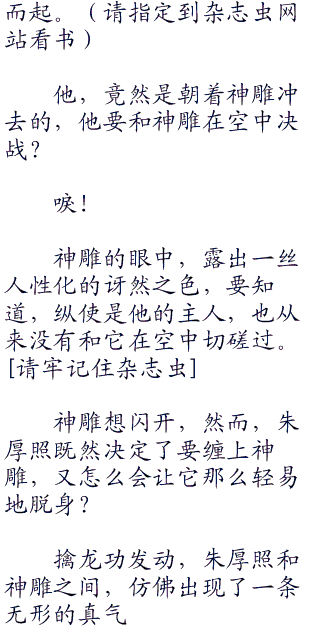 而起。（请指定到杂志虫网
站看书）
他，竟然是朝着神雕冲
去的，他要和神雕在空中决
战？
唳！
神雕的眼中，露出一丝
人性化的讶然之色，要知
道，纵使是他的主人，也从
来没有和它在空中切磋过。
[请牢记住杂志虫]
神雕想闪开，然而，朱
厚照既然决定了要缠上神
雕，又怎么会让它那么轻易
地脱身？
擒龙功发动，朱厚照和
神雕之间，仿佛出现了一条
无形的真气